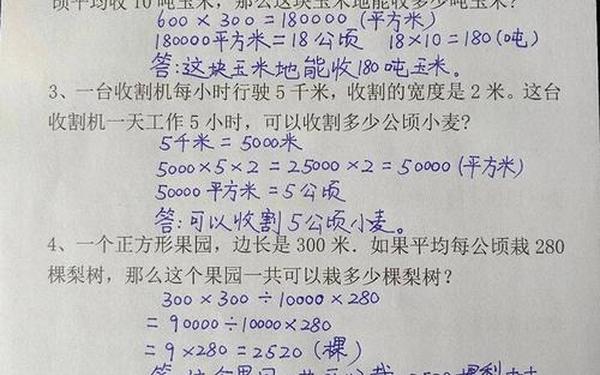 顷平均收 10 吨玉米，那么这块玉米地能收多少吨玉米？
600 × 300 = 180000 (平方米)
180000平方米 = 18公顷 18×10 = 180(吨)
答:这块玉米地能收180吨玉米。
3、一台收割机每小时行驶 5 千米，收割的宽度是 2 米。这台
收割机一天工作 5 小时，可以收割多少公顷小麦？
5千米 = 5000米
5000×5×2 = 25000 ×2 = 50000 (平方米)
50000 平方米 = 5 公顷
答:可以收割5公顷小麦。
4、一个正方形果园，边长是 300 米．如果平均每公顷栽 280
棵梨树，那么这个果园一共可以栽多少棵梨树？
300 × 300 ÷ 10000 × 280
= 90000 ÷ 10000 × 280
= 9 × 280 = 2520 (棵)